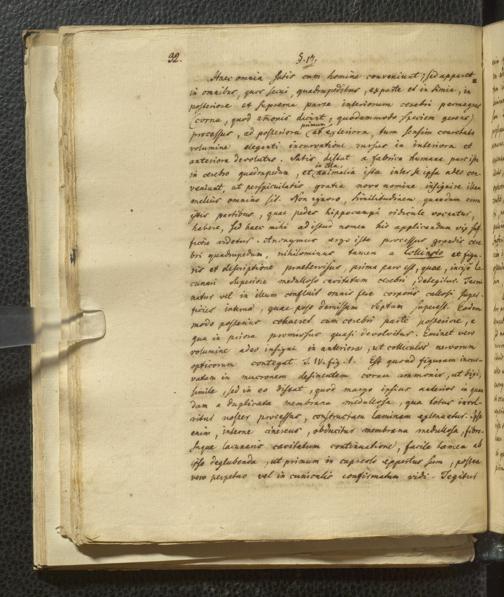 92. §.17.
Haec omnia satis cum homine conveniunt; sed apparet
in omnibus, quos secui, quadrupedibus, expertis et in Simia, in
posteriore et suprema parte interiorum cerebri permagnus
(cornu, quod ammonis dicunt, quodammodo speciem gerens)
processus, ad posteriora primum et exteriora, tum sensim coarctato
volumine eleganti incurvatione rursus in interiora et
anteriora devolutus. Satis distat a fabrica humana pars ista
in cerebro quadrupedum, et in illa, animalia ista inter se ipsa adeo con-
veniunt, ut perspicuitatis gratia novo nomine insignire illam
melius omnino sit. Non ignoro, similitudinem quandam cum
istis partibus, quae pedes hippocampi ridicule vocantur,
habere, sed haec mihi ad istud nomen his applicandum vix suf-
ficere videtur. Anonymus ergo iste processus cere-
bri quadrupedum, nihilominus tamen a Collinsio et figu-
ris et descriptione praetervisus, prima pars est, quae, inciso la-
cunari superiore medulloso cavitatum cerebri, detegitur. Termi-
natus vel in illum confluit omnis fere corporis callosi super-
ficies interna, quae post demissum septum superest. Eodem
modo posterius cohaeret cum cerebri parte posteriore, e
qua in priora promissus quasi devolvitur. Eminet vero
volumine adeo insigni in anteriora, ut colliculos nervorum
opticorum contegat T. IV. fig. 1. Est quoad figuram incur-
vatam in mucronem desinentem cornu ammonis, ut dixi,
simile, sed in eo distat, quod margo ipsius anterior in quan-
dam a duplicata membrana medullosa, qua totus invol-
vitur noster processus, constructam laminam extenuetur. Ipse
enim, interne cinereus, obducitur membrana medullosa, fibro-
sague lacunaris cavitatum continuatione, facile tamen ab
ipso deglubenda, ut primum in cuniculo expertus sum, postea
vero perpetuo vel in cuniculis confirmatum vidi. Tegitur